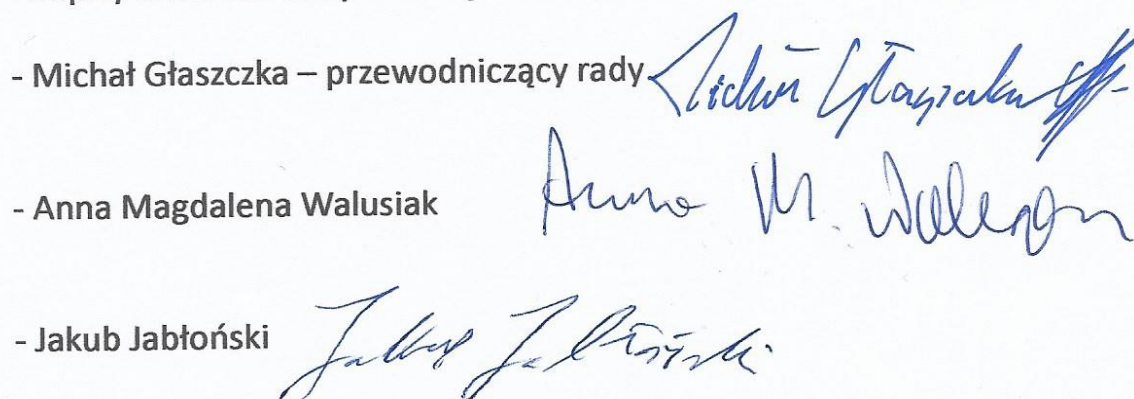 - Michał Głaszczka – przewodniczący rady Michał Głaszczka
- Anna Magdalena Walusiak Anna M. Walusiak
- Jakub Jabłoński Jakub Jabłoński